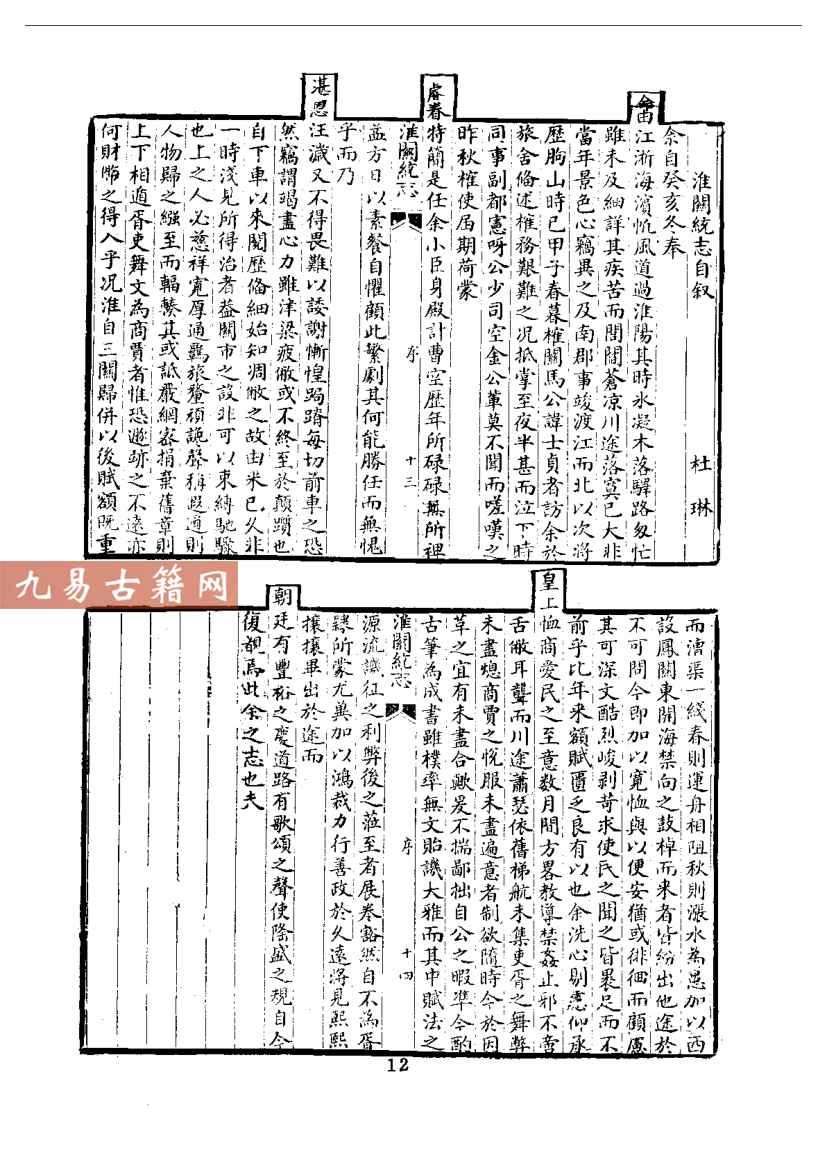 淮關統志自叙
杜琳
余自癸亥冬奉
命由江浙海濱忱風道過淮陽其時氷凝木落驛路匆忙
雖未及細詳其疾苦而閭閻蒼凉川途落寞已大非
當年景色心竊異之及南郡事竣渡江而北以次將
歷朐山時已甲子春暮榷關馬公諱士貞者訪余於
旅舍俻述榷務艱難之况抵掌至夜半甚而泣下時
同事副都憲呀公少司空金公輩莫不聞而嗟嘆之
昨秋榷使届期荷蒙
睿眷特簡是任余小臣身殿計曹空歷年所碌碌無所裨
淮關統志
序
十三
益方日以素餐自懼顧此繁劇其何能勝任而無愧
乎而乃
湛恩汪濊又不得畏難以諉謝慚惶跼蹐每切前車之恐
然竊謂竭盡心力雖津梁疲僘或不終至於顛躓也
自下車以來閱歷俻細始知凋僘之故由來已久非
一時淺見所得治者葢關市之設非可以束縛馳驟
也上之人必慈祥寛厚通羈旅釐頑詭聲稱遐通則
人物歸之繦至而輻輳其或詆嚴網宻捐棄舊章則
上下相遁胥吏舞文為商賈者惟恐遯跡之不遠亦
何財賄之得入乎况淮自三關歸併以後賦額既重
而漕渠一綫春則運舟相阻秋則漲水為患加以西
設鳳關東開海禁向之鼓棹而来者皆紛出他途於
不可問今即加以寛恤與以便安猶或徘徊而顧慮
其可深文酷烈峻剥苛求使民之聞之皆裹足而不
前乎比年来額賦匱乏良有以也余洗心剔慮仰承
皇上恤商愛民之至意数月間方畧教導禁姦止邪不啻
舌僘耳聾而川途蕭瑟依舊梯航未集吏胥之舞弊
未盡熄商賈之悅服未盡遍意者制欲隨時今於因
革之宜有未盡合歟爰不揣鄙拙自公之暇準今酌
古筆為成書雖樸率無文貽譏大雅而其中賦法之
淮關統志
序
十四
源流譏征之利弊後之蒞至者展卷豁然自不為胥
隸所蒙尤冀加以鴻裁力行善政於久遠將見熙熙
攘攘畢出於途而
朝廷有豐裕之慶道路有歌頌之聲使隆盛之規自今
復覩焉此余之志也夫
12
九易古籍网